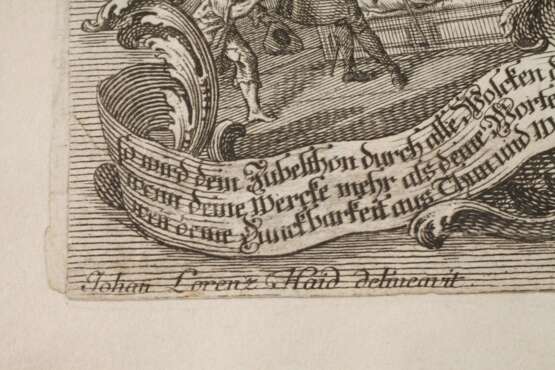 so wird dein Jubelthon durch alle Wolcken
wenn deine Wercke mehr als deine Worte
weil deine Danckbarkeit aus Thun und
Johan Lorenz Haid delineavit.